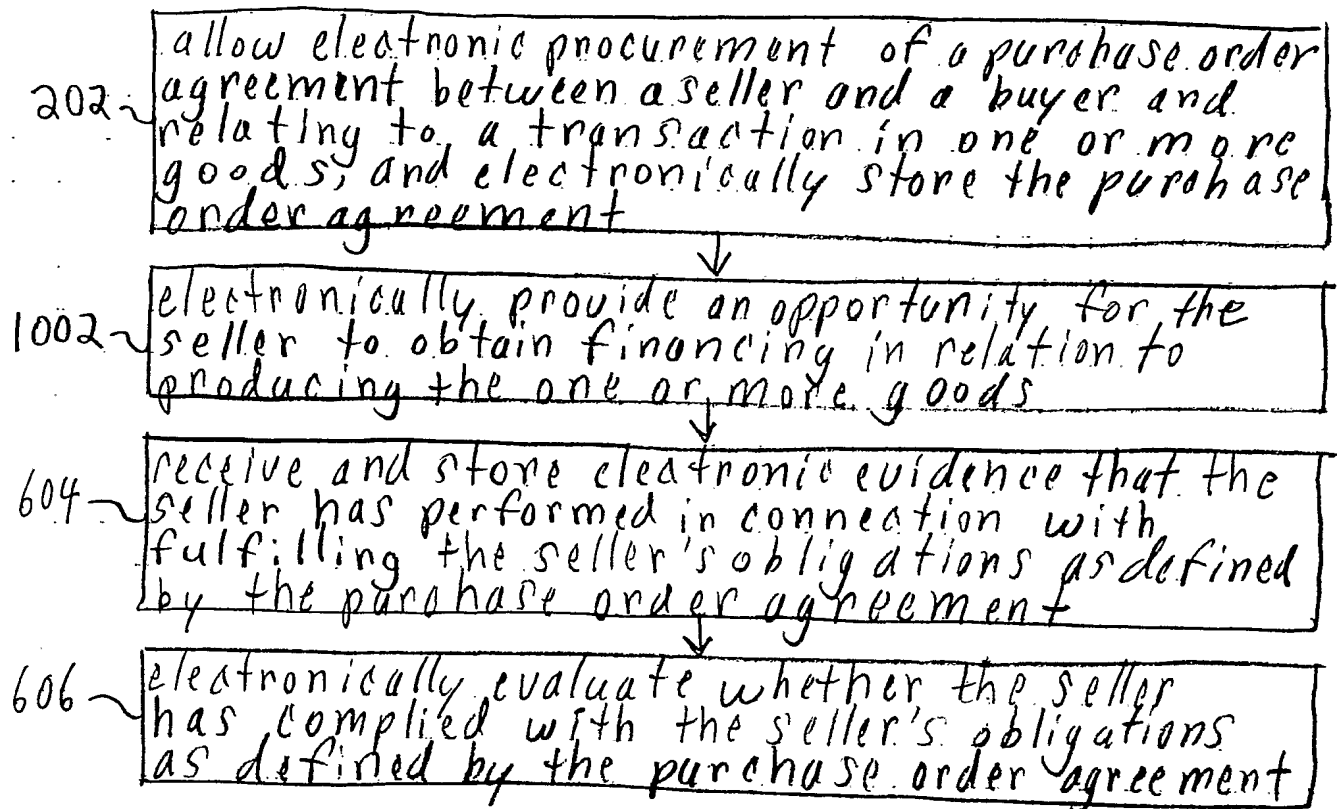 allow electronic procurement of a purchase order
202 agreement between a seller and a buyer and
relating to a transaction in one or more
goods, and electronically store the purchase
order agreement
electronically provide an opportunity for the
1002 seller to obtain financing in relation to
producing the one or more goods
receive and store electronic evidence that the
604 seller has performed in connection with
fulfilling the seller's obligations as defined
by the purchase order agreement
606 electronically evaluate whether the seller
has complied with the seller's obligations
as defined by the purchase order agreement